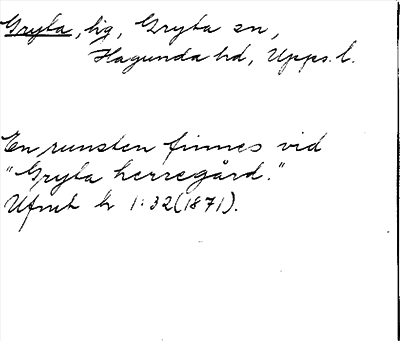 Gryta, hg, Gryta sn,
Hagunda hd, Upps. l.
En runsten finnes vid
"Gryta herregård."
Ufmt h 1:32 (1871).